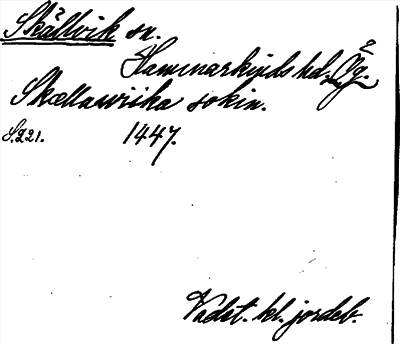 Skällvik sn.
Hammarkinds hd. Ög.
Skællawiika sokin.
S. 221. 1447.
Vadst. kl. jordeb.